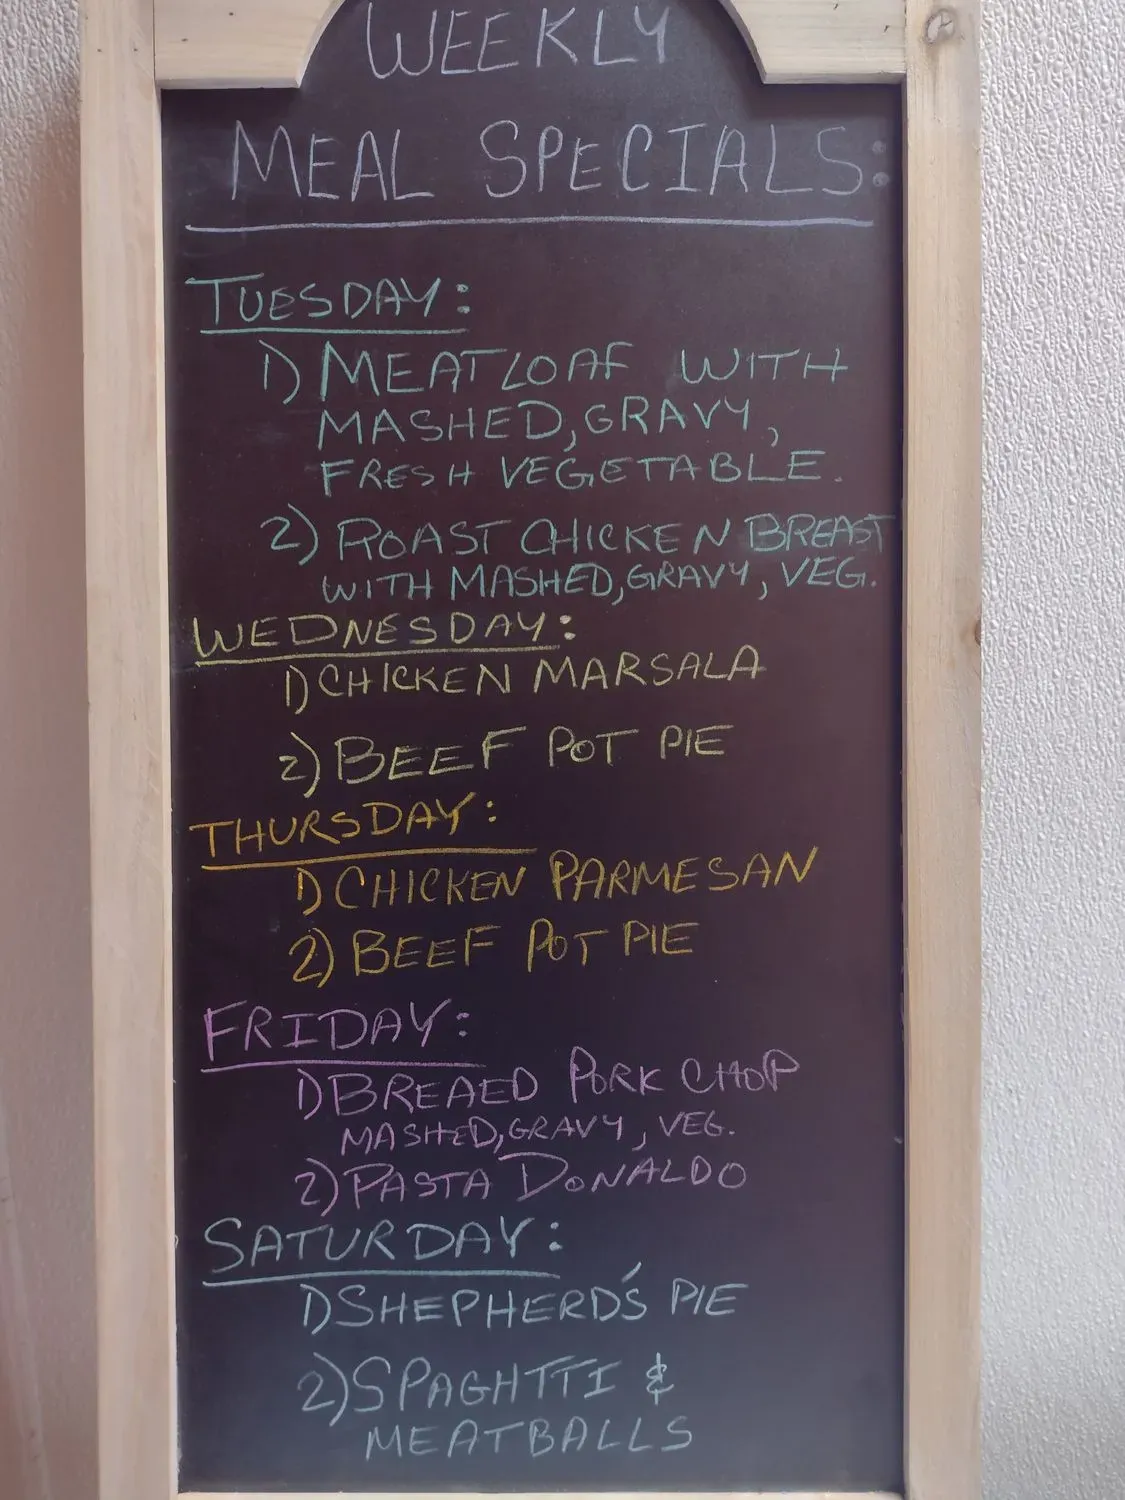 WEEKLY
MEAL SPECIALS:
TUESDAY:
1) MEATLOAF WITH
MASHED, GRAVY,
FRESH VEGETABLE.
2) ROAST CHICKEN BREAST
WITH MASHED, GRAVY, VEG.
WEDNESDAY:
1) CHICKEN MARSALA
2) BEEF POT PIE
THURSDAY:
1) CHICKEN PARMESAN
2) BEEF POT PIE
FRIDAY:
1) BREAED PORK CHOP
MASHED, GRAVY, VEG.
2) PASTA DONALDO
SATURDAY:
1) SHEPHERD'S PIE
2) SPAGHTTI &
MEATBALLS